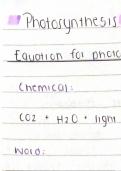 Photosynthesis
Equation for photo
Chemical:
CO2 + H2O + light
Word: